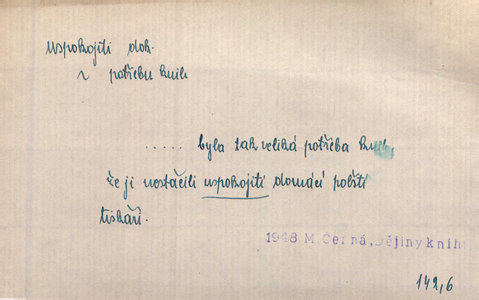 uspokojiti dok.
2 potřebu knih
..... byla tak veliká potřeba knih,
že ji nestačili uspokojiti domácí polští
tiskaři.
1948 M. Černá, Dějiny knih
142,6